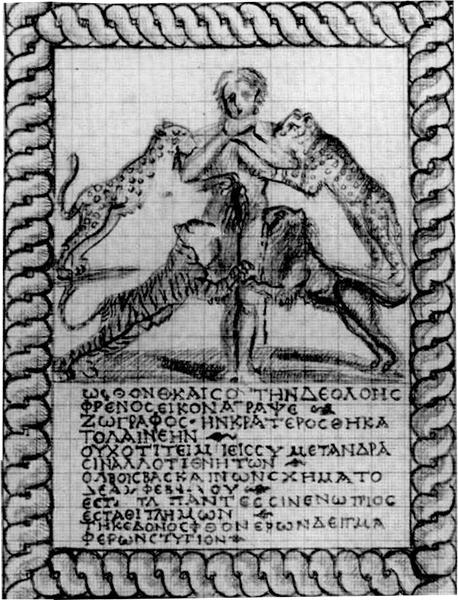 ωφθονεκαιϲο τηνδεολοηϲ
φρενοϲεικονα ραψε
ζωγραφοϲ·ηνκρατεροϲθηκα
τολαινεην
ουχοτιτειμ ιειϲϲυμετανδρα
ϲιναλλοτιθνητων
ολβοιϲβαϲκαινωνϲχηματο
δεα φεβαλου
εϲτ παντεϲϲινενωπιοϲ
εϲταθιτλημων
τηκεδονοϲφθονερωνδειγμα
φερωνϲτυγιον